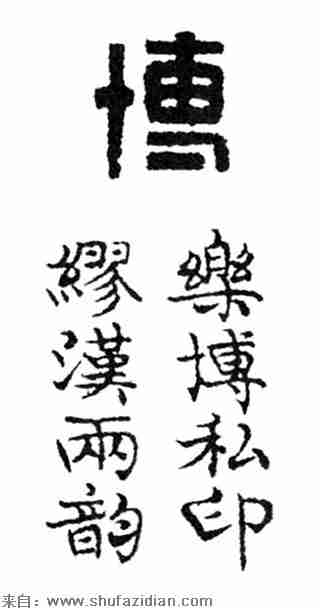 博
樂博私印
繆漢兩韵
来自：www.shufazidian.com